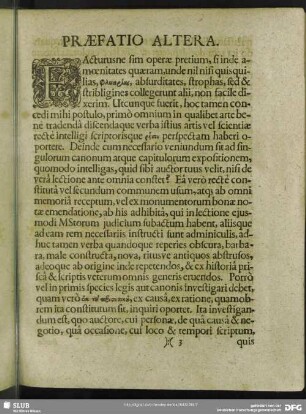 PRÆFATIO ALTERA.
FActurusne sim operæ pretium, si inde a-
mœnitates quæram, unde nil nisi quisqui-
lias, absurditates, strophas, sed &
stribligines collegerunt alii, non facile di-
xerim. Utcunque fuerit, hoc tamen con-
cedi mihi postulo, primò omnium in qualibet arte be-
ne tradendâ discendaque verba istius artis vel scientiæ
rectè intelligi scriptorisque perspectam haberi o-
portere. Deinde cum necessario veniundum sit ad sin-
gulorum canonum atque capitulorum expositionem,
quomodo intelligas, quid sibi auctor tuus velit, nisi de
verâ lectione ante omnia constet? Ea verò rectè con-
stituta vel secundum communem usum, atq; ab omni
memoriâ receptum, vel ex monumentorum bonæ no-
tæ emendatione, ab his adhibitâ, qui in lectione ejus-
modi MStorum judicium subactum habent, aliisque
ad eam rem necessariis instructi sunt adminiculis, ad-
huc tamen verba quandoque reperies obscura, barba-
ra, male constructa, nova, ritusve antiquos abstrusos,
adeoque ab origine inde repetendos, & ex historiâ pris-
câ & scriptis veterum omnis generis eruendos. Porrò
vel in primis species legis aut canonis investigari debet,
quam verò ex causâ, ex ratione, quamob-
rem ita constitutum sit, inquiri oportet. Ita investigan-
dum est, quo auctore, cui personæ, de quâ causâ & ne-
gotio, quâ occasione, cui loco & tempori scriptum,
)( 3
quis
SLUB
DFG